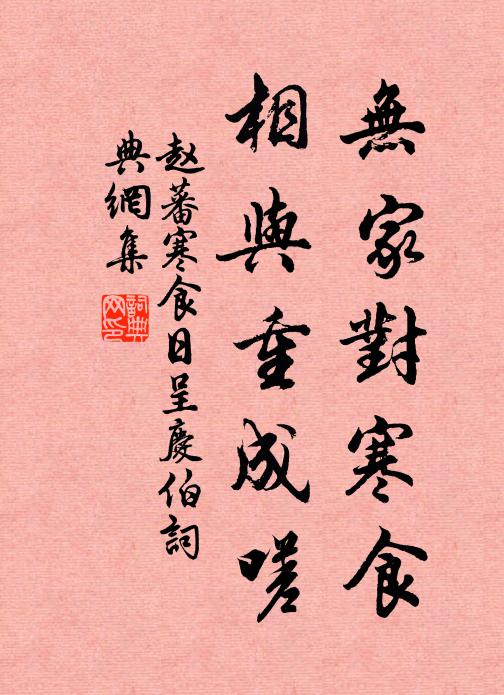 無家對寒食
相與重成嗟
赵蕃寒食日呈慶伯詞
典網集
詞典
网印